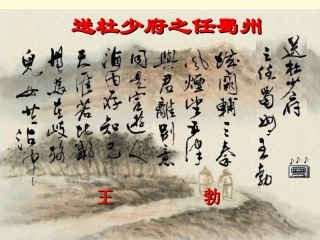 送杜少府之任蜀州
送杜少府
之任蜀州王勃
城闕輔三秦
風煙望五津
與君離別意
同是宦遊人
海内存知己
天涯若比鄰
無為在歧路
兒女共沾巾
王勃